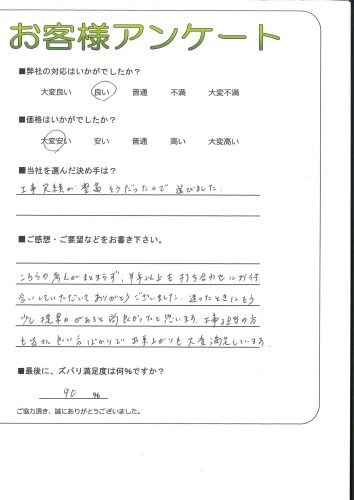 お客様アンケート
■弊社の対応はいかがでしたか？
大変良い 良い 普通 不満 大変不満
■価格はいかがでしたか？
大変安い 安い 普通 高い 大変高い
■当社を選んだ決め手は？
工事実績が豊富そうだったので 選びました.
■ご感想・ご要望などをお書き下さい。
こちらの考えがまとまらず、半年以上も打ち合わせにお付
合いしていただいてありがとうございました. 迷ったときにもう
少し提案があると尚良かったと思います. 工事担当の方
も皆さん良い方ばかりで 出来上がりも大変満足しています.
■最後に、ズバリ満足度は何%ですか？
90 %
ご協力頂き、誠にありがとうございました。